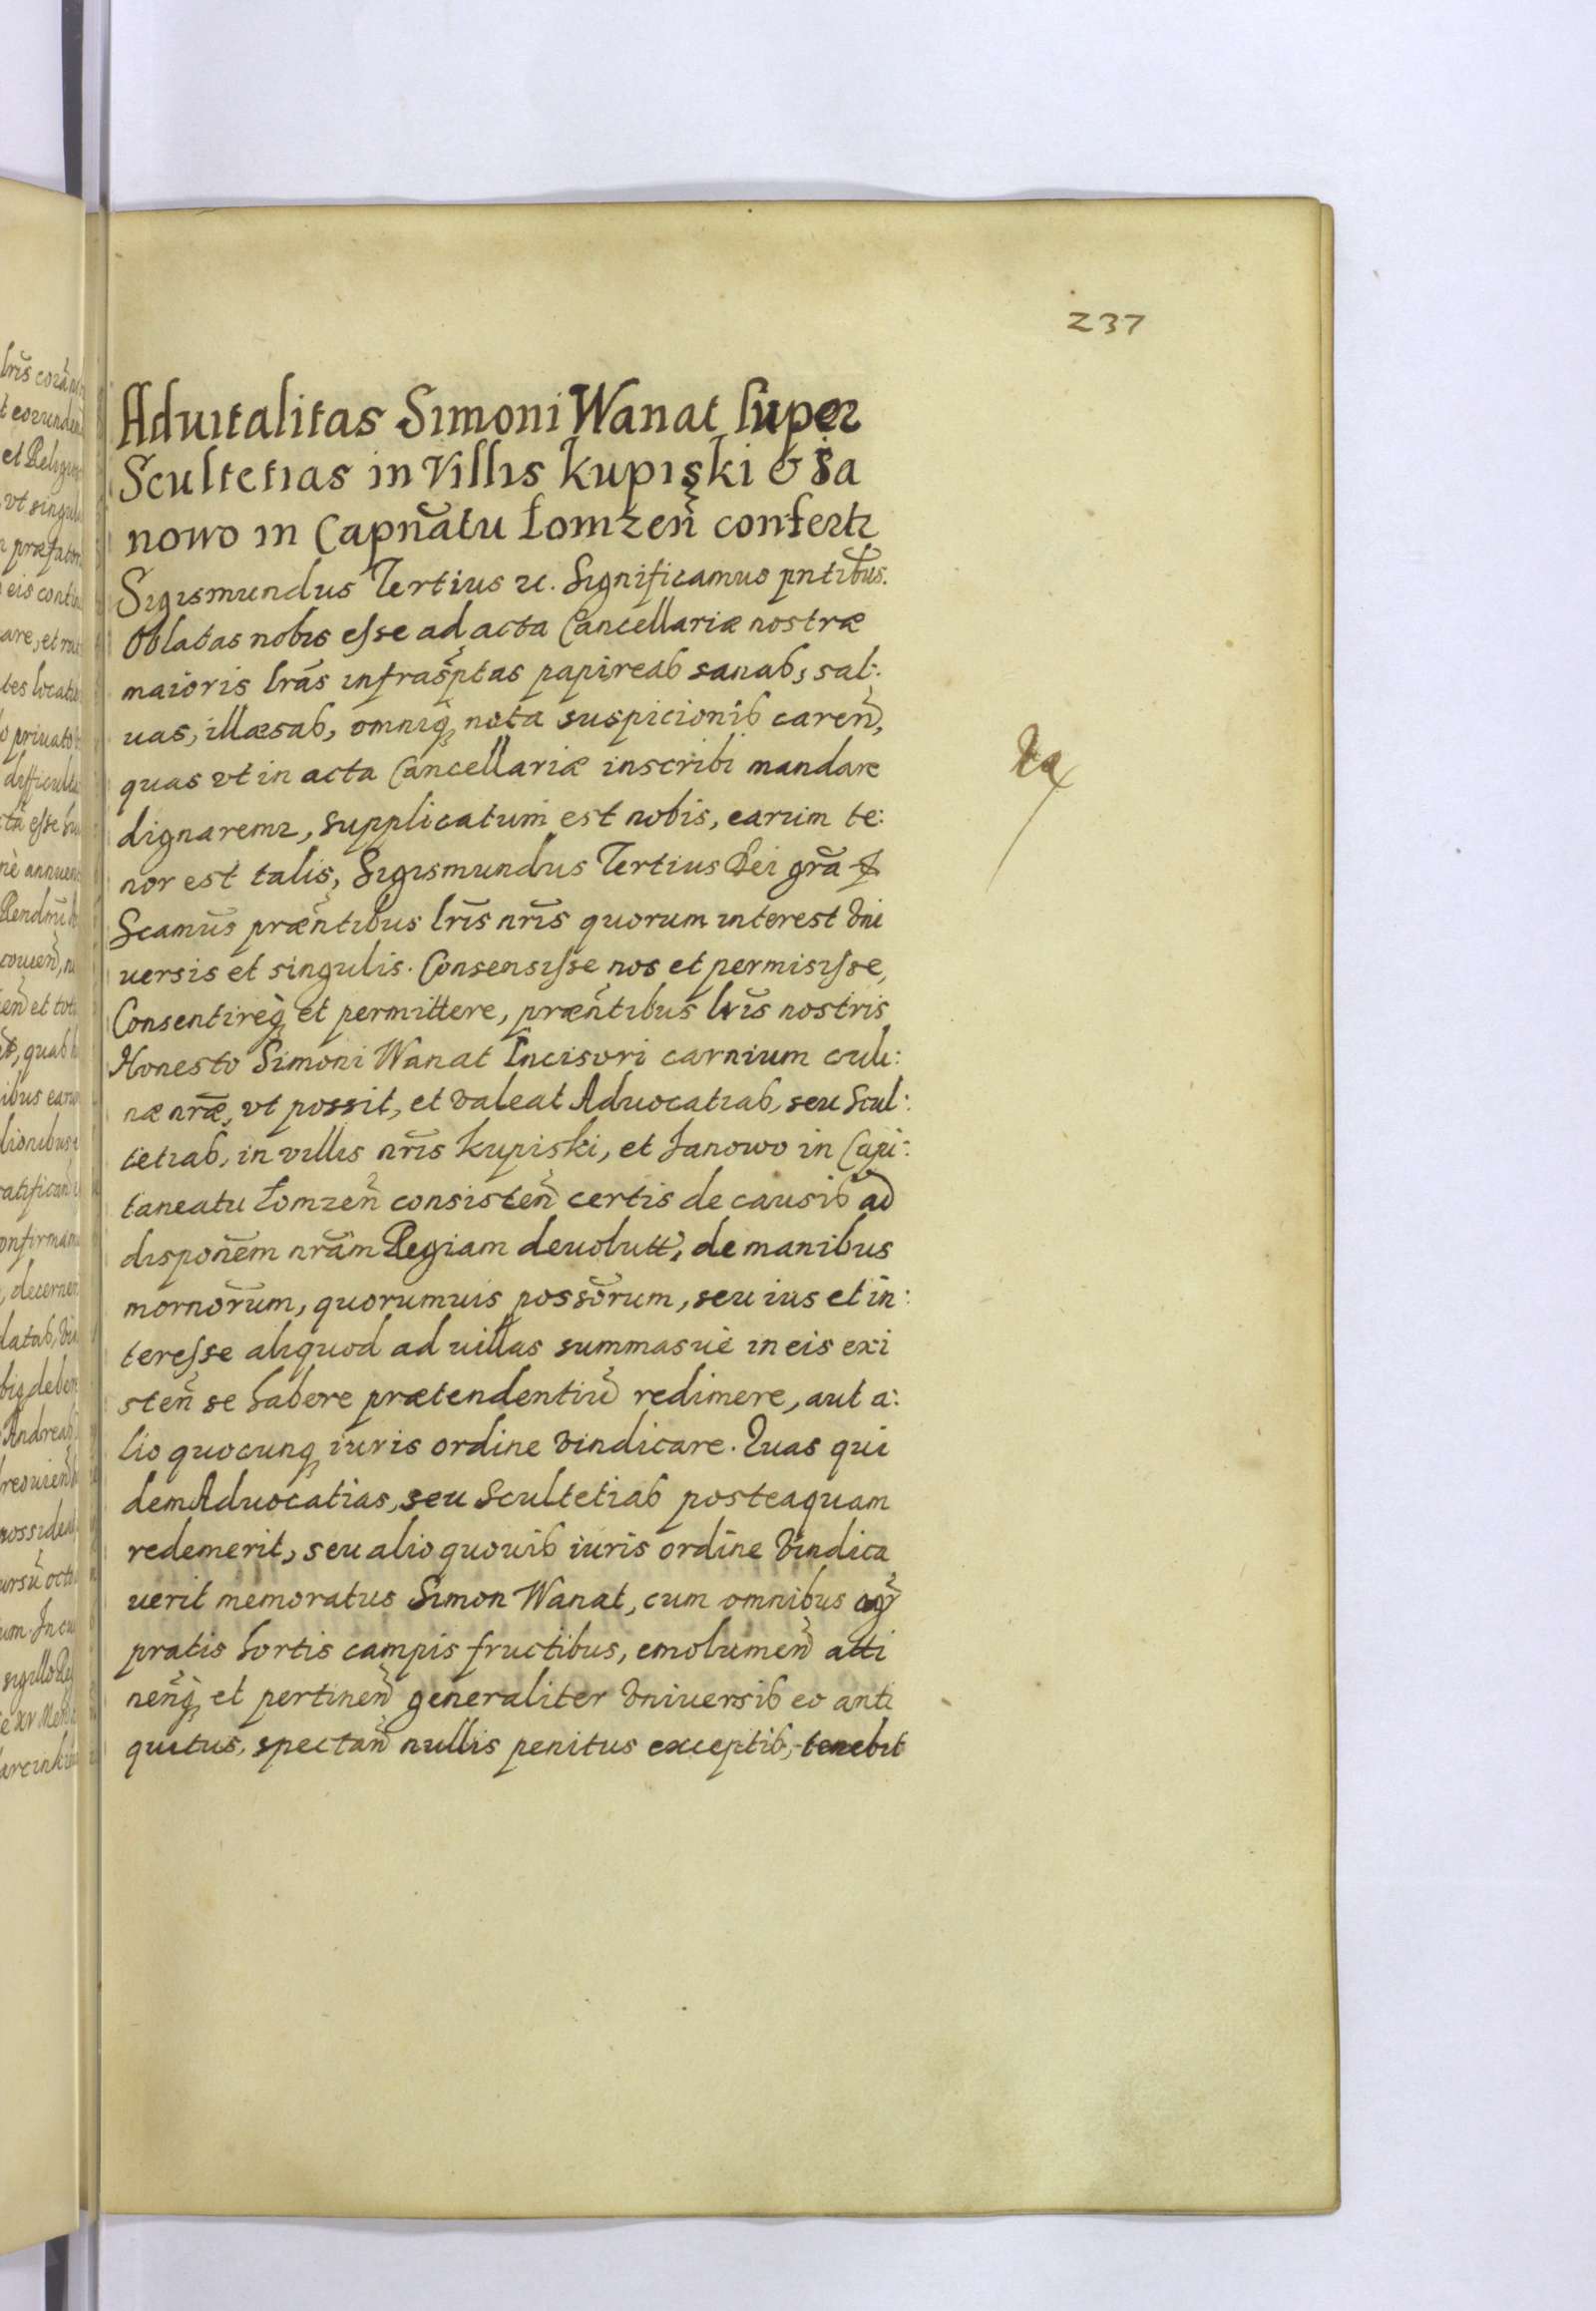 237
Aduitalitas Simoni Wanat super
Scultetias in Villis Kupiski & Ia
nowo in Capñatu Łomzeñ confertr
Sigismundus Tertius etc. Significamus pñtibus.
Oblatas nobis esse ad acta Cancellariæ nostræ
maioris lrãs infrasptas papireas sanas, sal:
uas, illæsas, omniq, nota suspicionis careñ,
quas vt in acta Cancellariæ inscribi mandare
dignaremr, supplicatum est nobis, earum te:
nor est talis, Sigismundus Tertius Dei grã
Scamus præñtibus lrĩs nrĩs quorum interest Vni
uersis et singulis. Consensisse nos et permisisse,
Consentireq, et permittere, præñtibus lrĩs nostris
Honesto Simoni Wanat Incisori carnium culi:
næ nræ, vt possit, et valeat Aduocatias, seu Scul:
tetias, in villis nrĩs Kupiski, et Janowo in Capi:
taneatu Łomzeñ consisteñ certis de causis ad
disponẽm nrãm Regiam deuolutt, de manibus
mornorum, quorumuis possorum, seu ius et in:
teresse aliquod ad villas summasuè in eis exi
steñ se habere prætendentiũ redimere, aut a:
lio quocunq, iuris ordine vindicare. Quas qui
dem Aduocatias, seu Scultetias posteaquam
redemerit, seu alio quouis iuris ordine vindica
uerit memoratus Simon Wanat, cum omnibus agr
pratis hortis campis fructibus, emolumeñ atti
neñq, et pertineñ generaliter Vniuersis eo anti
quitus, spectañ nullis penitus exceptis, tenebit